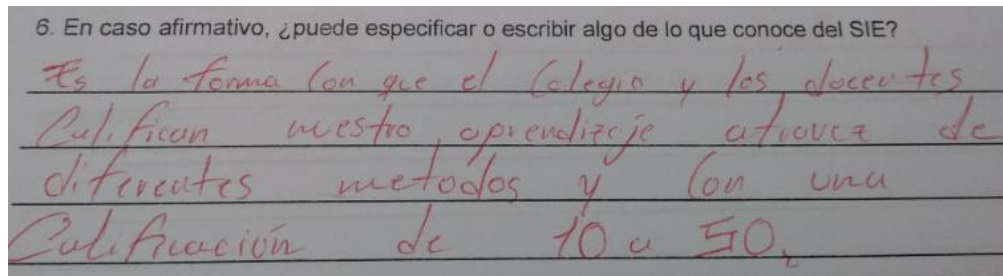 6. En caso afirmativo, ¿puede especificar o escribir algo de lo que conoce del SIE?
Es la forma Con que el Colegio y los docentes
Califican nuestro aprendizaje atravez de
diferentes metodos y Con una
Calificación de 10 a 50.